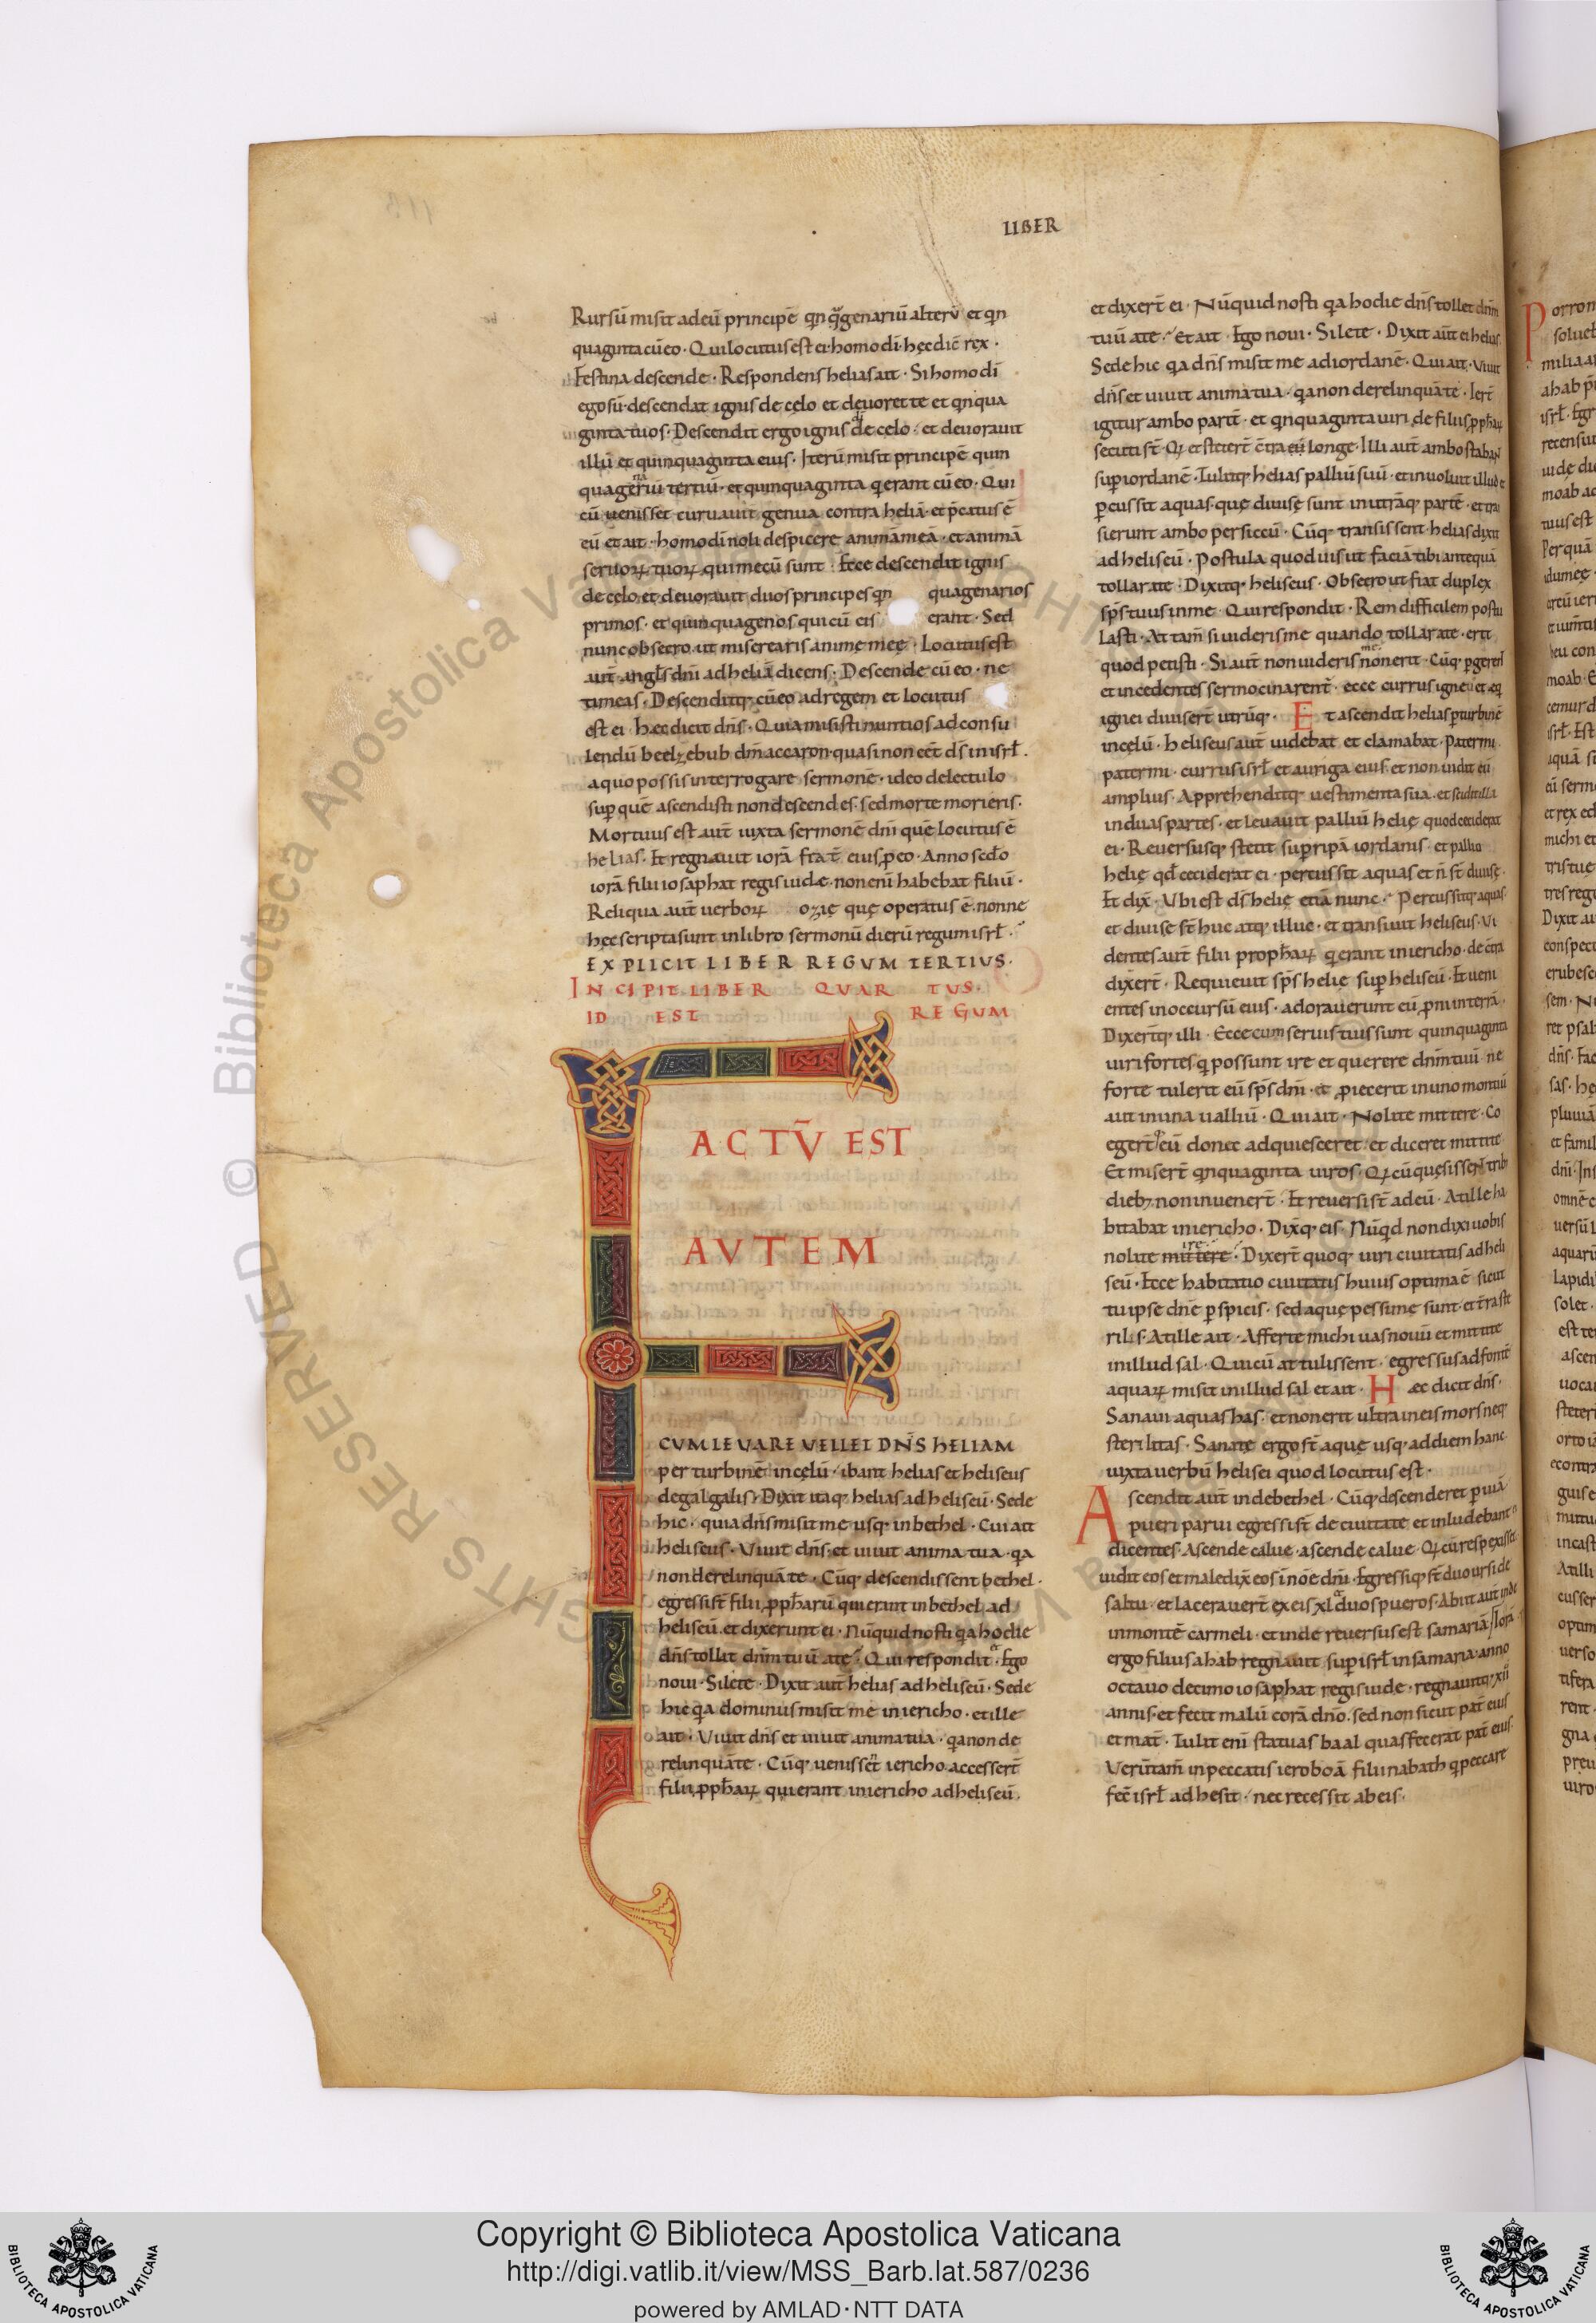 LIBER
Rursū misit ad eū principē qn qͣgenariū alterū et qn
quaginta cū eo · Qui locutus est ei · homo dī · hęc dic̄ rex ·
Festina descende · Respondens helias ait · Si homo dī
ego sū · descendat ignis de cęlo et deuoret te et qnqua
ginta tuos · Descendit ergo ignis de cęlo · et deuorauit
illū et quinquaginta eius · Iterū misit principē quin
quagenariū tertiū · et quinquaginta q erant cū eo · Qui
cū uenisset curuauit genua contra heliā · et p̄catus ē
eū et ait · homo dī noli despicere animā meā · et animā
seruoꝝ tuoꝝ qui mecū sunt · Ecce descendit ignis
de cęlo et deuorauit duos principes qn quagenarios
primos · et quinquagenos qui cū eis erant · Sed
nunc obsecro ut miserearis animę meę · Locutus est
aūt angl̄s dn̄i ad heliā dicens · Descende cū eo · ne
timeas · Descenditq; cū eo ad regem et locutus
est ei · hęc dicit dn̄s · Quia misisti nuntios ad consu
lendū beelzebub dm̄ accaron · quasi non eēt dś in isrł ·
a quo possis interrogare sermonē · ideo de lectulo
sup quē ascendisti non descendes · sed morte morieris ·
Mortuus est aūt iuxta sermonē dn̄i quē locutus ē
helias · Et regnauit iorā frat̄ eius p eo · Anno scd̄o
iorā filii iosaphat regis iudę · non enī habebat filiū ·
Reliqua aūt uerboꝝ ozię quę operatus ē · nonne
hęc scripta sunt in libro sermonū dierū regum isrł ·
EXPLICIT LIBER REGUM TERTIUS ·
INCIPIT LIBER QUARTUS ·
ID EST REGUM
FACTŪ EST
AUTEM
CUM LEUARE UELLET DN̄S HELIAM
per turbinē in cęlū · ibant helias et heliseus
de galgalis · Dixit itaq; helias ad heliseū · Sede
hic · quia dn̄s misit me usq; in bethel · Cui ait
heliseus · Uiuit dn̄s · et uiuit anima tua · qa
non derelinquā te · Cūq; descendissent bethel ·
egressi sт̄ filii pph̄arū qui erant in bethel ad
heliseū · et dixerunt ei · Nūquid nosti qa hodie
dn̄s tollit dn̄m tuū a te · Qui respondit · Et ego
noui · Silete · Dixit aūt helias ad heliseū · Sede
hic qa dominus misit me in iericho · et ille
ait · Uiuit dn̄s et uiuit anima tua · qa non de
relinquā te · Cūq; uenissēt iericho · accessert̄
filii pph̄aꝝ qui erant in iericho ad heliseū ·
et dixert̄ ei · Nūquid nosti qa hodie dn̄s tollet dn̄m
tuū a te · Et ait · Ego noui · Silete · Dixit aūt ei helias
Sede hic qa dn̄s misit me ad iordanē · Qui ait · Uiuit
dn̄s et uiuit anima tua · qa non derelinquā te · Iert̄
igitur ambo parit̄ · et qnquaginta uiri de filiis pph̄aꝝ
secuti sт̄ · Q; et stetert̄ c̄tra eū longe · Illi aūt ambo stabant
sup iordanē · Tulitq; helias palliū suū · et inuoluit illud et
pcussit aquas · quę diuisę sunt in utrāq; partē · et tran
sierunt ambo per siccū · Cūq; transissent · helias dixit
ad heliseū · Postula quod uis ut faciā tibi antequā
tollar a te · Dixitq; heliseus · Obsecro ut fiat duplex
sp̄s tuus in me · Qui respondit · Rem difficilem postu
lasti · Attam̄ si uideris me quando tollar a te · erit
quod petisti · Si aūt non uideris me non erit · Cūq; pgerent
et incedentes sermocinarent · ecce currus igneus et eq
ignei diuisert̄ utrūq; · Et ascendit helias p turbinē
in cęlū · heliseus aūt uidebat et clamabat · Pater mi
pater mi · currus isrł et auriga eius · et non uidit eū
amplius · Apprehenditq; uestimenta sua · et scidit illa
in duas partes · et leuauit palliū helię quod ceciderat
ei · Reuersusq; stetit sup ripā iordanis · et pallio
helię qd̄ ceciderat ei · percussit aquas et n̄ sт̄ diuisę ·
Et dix̄ · Ubi est dś helię etiā nunc · Percussitq; aquas
et diuisę sт̄ huc atq; illuc · et transiuit heliseus · Ui
dentes aūt filii proph̄aꝝ q erant in iericho · de c̄tra
dixert̄ · Requieuit sp̄s helię sup heliseū · Et ueni
entes in occursū eius · adorauerunt eū pni in terrā ·
Dixert̄q; illi · Ecce cum seruis tuis sunt quinquaginta
uiri fortes q possunt ire et querere dn̄m tuū · ne
forte tulerit eū sp̄s dn̄i · et piecerit in uno montiū
aut in una ualliū · Qui ait · Nolite mittere · Co
egert̄q; eū donec adquiesceret · et diceret mittite
Et misert̄ qnquaginta uiros · Q; cū quęsissent trib;
dieb; non inuenert̄ · Et reuersi sт̄ ad eū · At ille ha
bitabat in iericho · Dixq; eis · Nūqd non dixi uobis
nolite mittere ire · Dixert̄ quoq; uiri ciuitatis ad heli
seū · Ecce habitatio ciuitatis huius optima ē sicut
tu ipse dn̄e pspicis · sed aquę pessimę sunt · et t̄ra ste
rilis · At ille ait · Afferte michi uas nouū et mittite
in illud sal · Qui cū attulissent · egressus ad fontē
aquaꝝ misit in illud sal et ait · Hęc dicit dn̄s ·
Sanaui aquas has · et non erit ultra in eis mors neq;
sterilitas · Sanatę ergo sт̄ aquę usq; ad diem hanc
iuxta uerbū helisei quod locutus est ·
Ascendit aūt inde bethel · Cūq; descenderet p uiā
pueri parui egressi sт̄ de ciuitate et inludebant ei
dicentes · Ascende calue · ascende calue · Q; cū resp
uidit eos et maledix̄ eos in nōe dn̄i · Egressiq; sт̄ duo ursi de
saltu · et lacerauert̄ ex eis xl duos pueros · Abiit aūt inde
in montē carmeli · et inde reuersus est samariā · Iorā
ergo filius ahab regnauit sup isrł in samaria · anno
octauo decimo iosaphat regis iudę · regnauitq; xii
annis · et fecit malū corā dn̄o · sed non sicut pat̄ eius
et mat̄ · Tulit enī statuas baal quas fecerat pat̄ eius ·
Uerūtam̄ in peccatis ieroboā filii nabath q peccare
fec̄ isrł adhesit · nec recessit ab eis ·
Copyright © Biblioteca Apostolica Vaticana
http://digi.vatlib.it/view/MSS_Barb.lat.587/0236
powered by AMLAD·NTT DATA
BIBLIOTECA APOSTOLICA VATICANA
BIBLIOTECA APOSTOLICA VATICANA